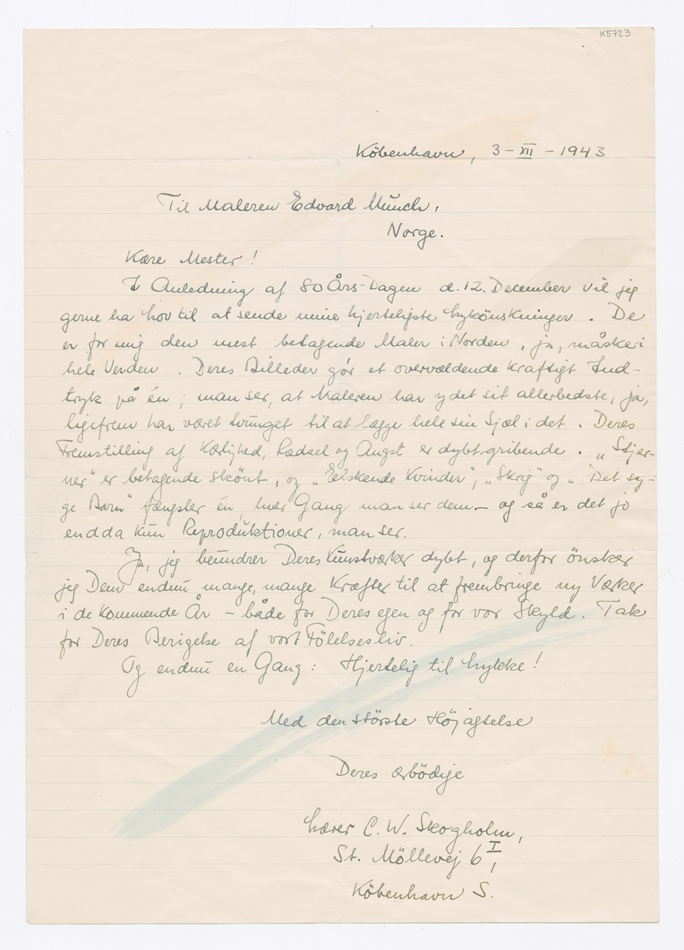 K5723
København, 3 - XII - 1943
Til Maleren Edvard Munch,
Norge.
Kære Mester!
I Anledning af 80 Års-Dagen d. 12. December vil jeg
gerne ha lov til at sende mine hjerteligste Lykönskninger. De
er for mig den mest betagende Maler i Norden, ja, måske i
hele Verden. Deres Billeder gör et overvældende kraftigt Ind-
tryk på én; man ser, at Maleren har ydet sit allerbedste, ja,
ligefrem har været tvunget til at lægge hele sin Sjæl i det. Deres
Fremstilling af Kærlighed, Rædsel og Angst er dybt gribende. „Stjer-
ner” er betagende skönt, og „Elskende Kvinder”, „Skrig” og „Det sy-
ge Barn” fængsler én, hver Gang man ser dem – og så er det jo
endda kun Reproduktioner, man ser.
Ja, jeg beundrer Deres Kunstværker dybt, og derfor önsker
jeg Dem endnu mange, mange Kræfter til at frembringe ny Værker
i de kommende År – både for Deres egen og for vor Skyld. Tak
for Deres Berigelse af vort Fölelsesliv.
Og endnu en Gang: Hjertelig til Lykke!
Med den störste Höjagtelse
Deres ærbödige
Lærer C. W. Skogholm,
St. Möllevej 6 I,
København S.